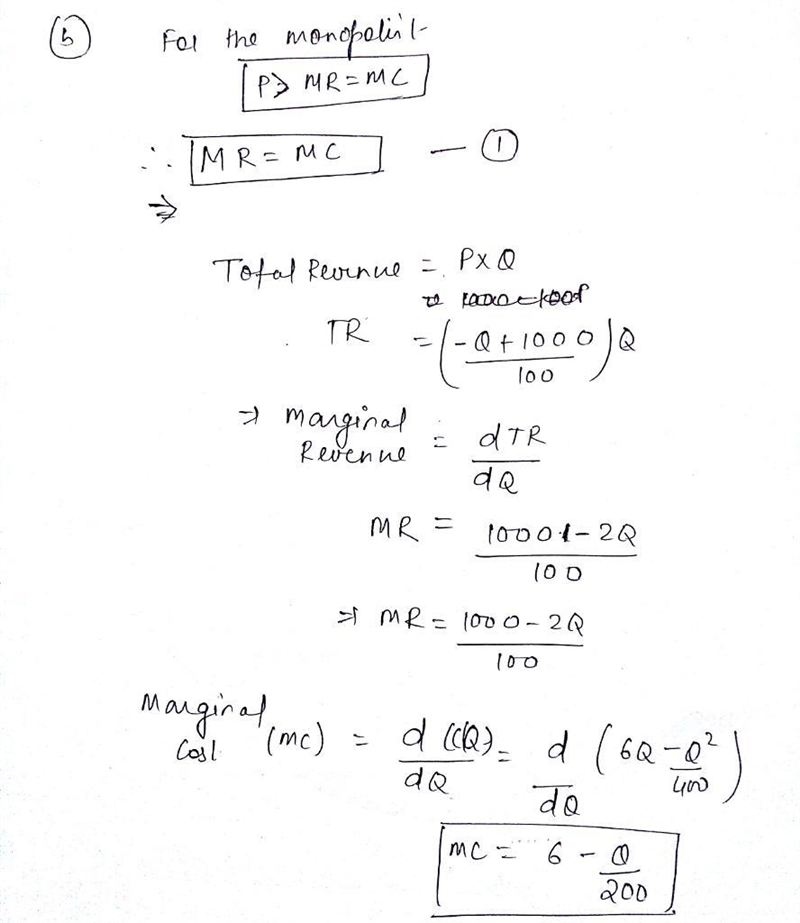 (b) For the monopolist
P > MR = MC
∴ MR = MC — (1)
⇒
Total Revenue = P x Q
TR = (-Q + 1000 / 100) Q
⇒ Marginal Revenue = dTR / dQ
MR = 1000 - 2Q / 100
⇒ MR = 1000 - 2Q / 100
Marginal Cost (MC) = d (C(Q)) / dQ = d / dQ (6Q - Q² / 400)
MC = 6 - Q / 200